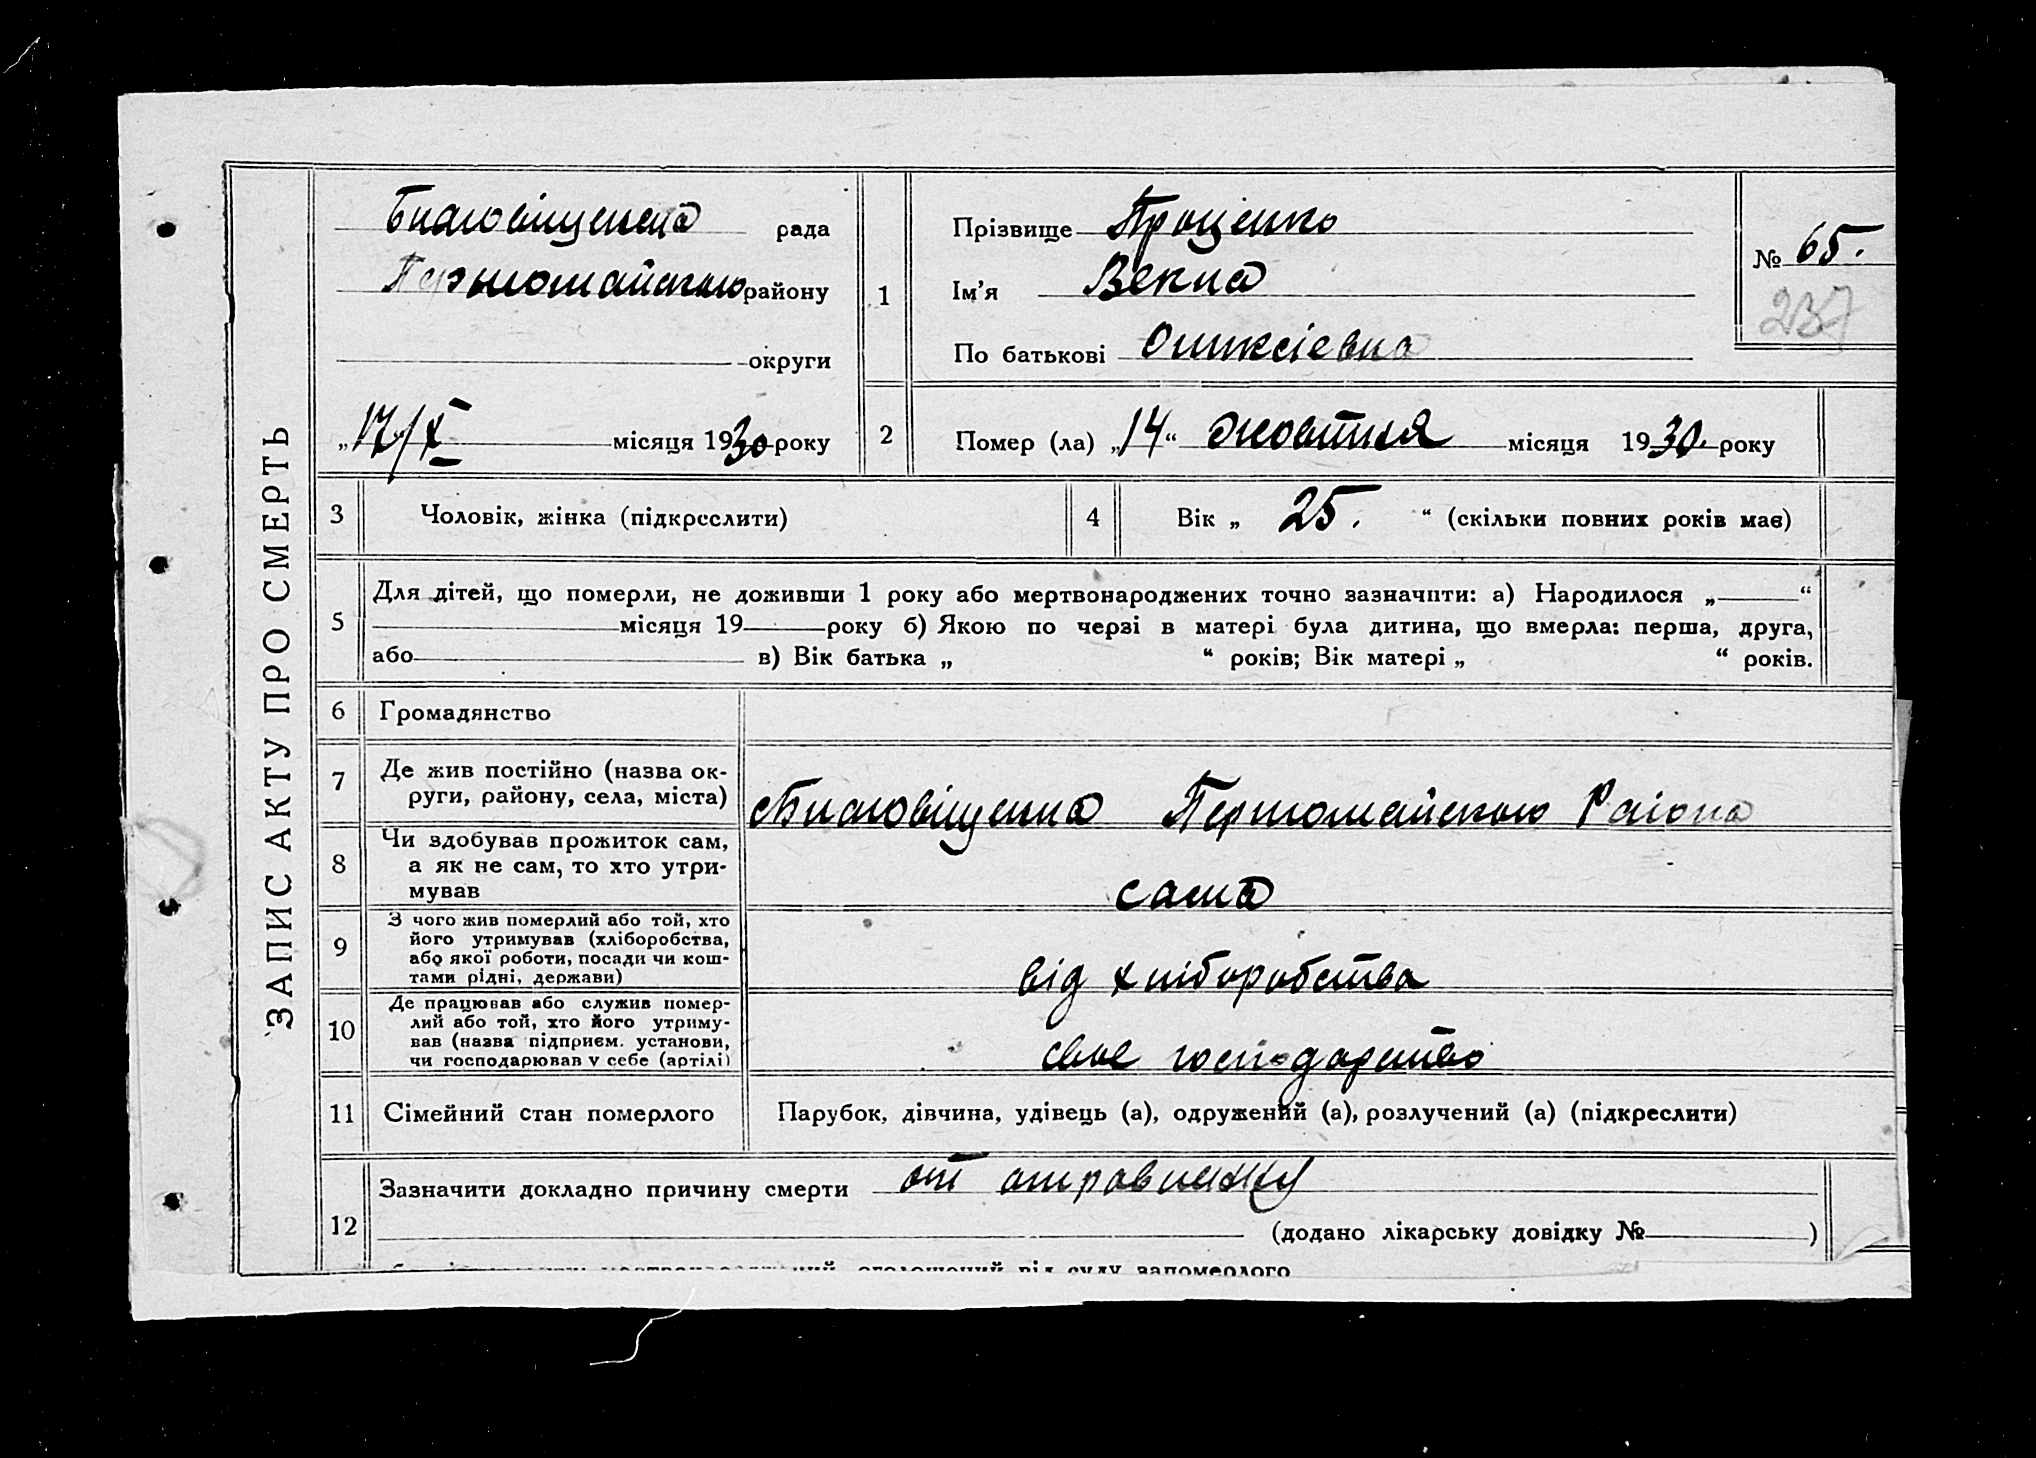 ЗАПИС АКТУ ПРО СМЕРТЬ
Благовіщенска рада
Первомайського району
округи
„17/X місяця 1930 року
1
Прізвище Проценко
Ім’я Векла
По батькові Олексіевна
№ 65.
237
2
Помер (ла) „14“ жовтня місяця 1930. року
3 Чоловік, жінка (підкреслити)
4 Вік „ 25. “ (скільки повних років має)
5
Для дітей, що померли, не доживши 1 року або мертвонароджених точно зазначити: а) Народилося „ “
місяця 19 року б) Якою по черзі в матері була дитина, що вмерла: перша, друга,
або в) Вік батька „ “ років; Вік матері „ “ років.
6 Громадянство
7 Де жив постійно (назва ок-
руги, району, села, міста)
Благовіщенка Первомайского Раіона
8 Чи здобував прожиток сам,
а як не сам, то хто утри-
мував
сама
9 З чого жив померлий або той, хто
його утримував (хліборобства,
або якої роботи, посади чи кош-
тами рідні, держави)
від хліборобства
10 Де працював або служив помер-
лий або той, хто його утриму-
вав (назва підприєм. установи,
чи господарював у себе (артілі)
свое господарство
11 Сімейний стан померлого
Парубок, дівчина, удівець (а), одружений (а), розлучений (а) (підкреслити)
12
Зазначити докладно причину смерти от
(додано лікарську довідку № )
оголошений від суду запомерлого